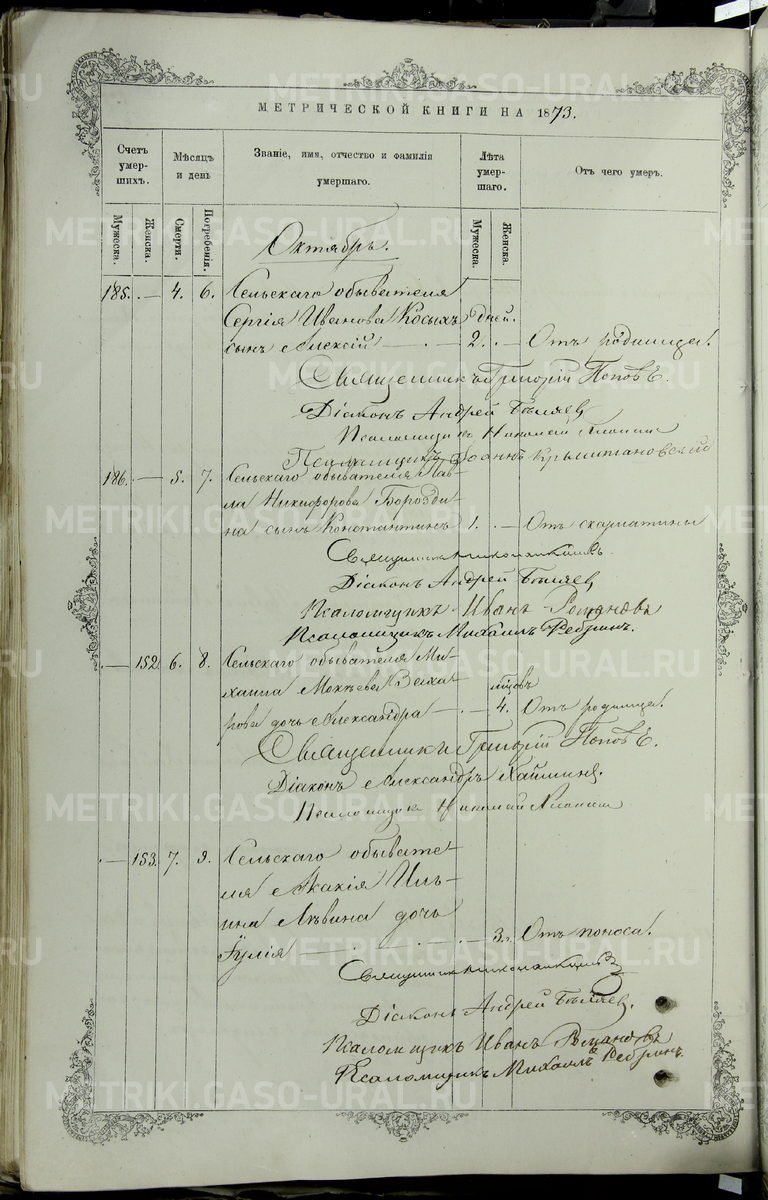 МЕТРИЧЕСКОЙ КНИГИ НА 1873.
Счетъ умер-шихъ. Мѣсяцъ и день Званіе, имя, отчество и фамилія умершаго. Лѣта умер-шаго. Отъ чего умеръ.
Мужеска. Женска. Смерти. Погребенія. Мужеска. Женска.
Октябрь.
185. — 4. 6. Сельскаго обывателя
Сергія Иванова Косыхъ дней.
сынъ Алексій — 2. — Отъ родимца.
Священникъ Григорій Поповъ.
Діаконъ Андрей Бѣляев
Псаломщикъ Николай
Псаломщикъ Іоаннъ
186. — 5. 7. Сельскаго обывателя Пав-
ла Никифорова Борозди-
на сынъ Константинъ 1. — Отъ скарлатины
Священникъ
Діаконъ Андрей Бѣляев
Псаломщикъ Иванъ Романовъ
Псаломщикъ Михаилъ Ребринъ.
— 152. 6. 8. Сельскаго обывателя Ми-
хаила Мокѣева Заха- мѣцовъ
рова дочь Александра — 4. Отъ родимца.
Священникъ Григорій Поповъ.
Діаконъ Александръ
Псаломщикъ Николай
— 153. 7. 9. Сельскаго обывате-
ля Акакія Иль-
ина Лѣвина дочь
Іулія — 3. Отъ поноса.
Священникъ
Діаконъ Андрей Бѣляев.
Псаломщикъ Иванъ Романовъ
Псаломщикъ Михаилъ Ребринъ.
METRIKI.GASO-URAL.RU